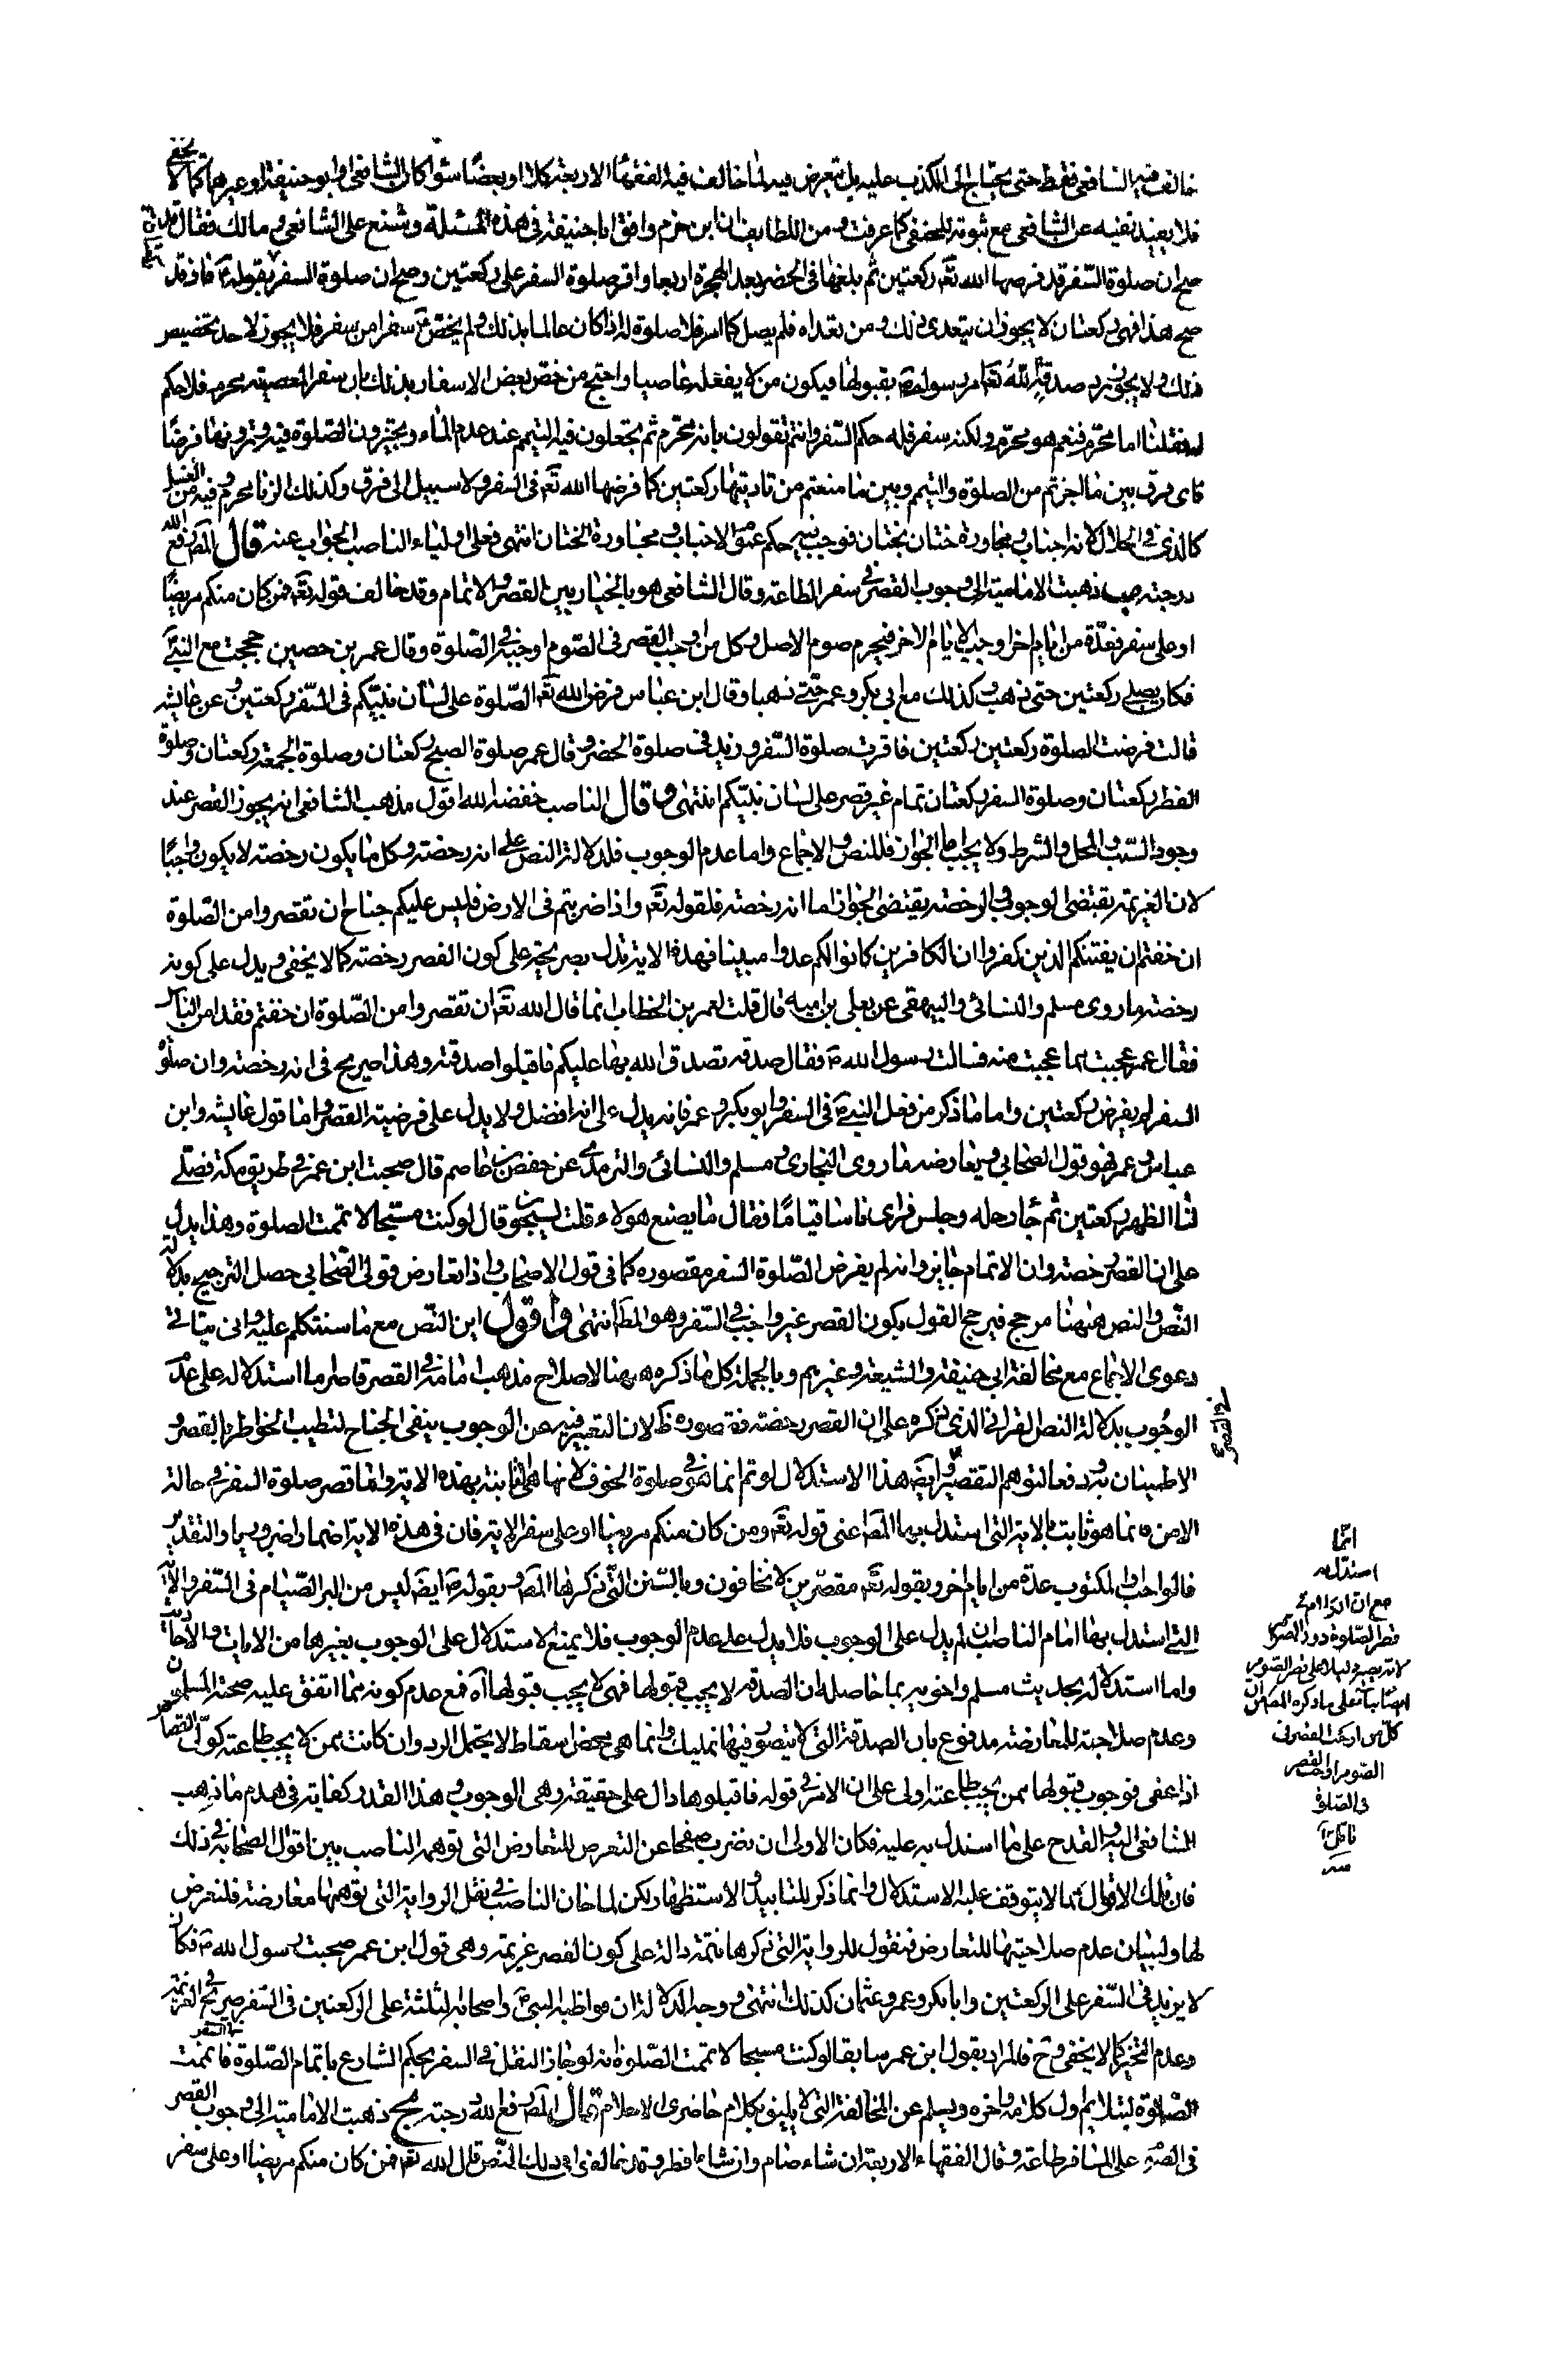 خالف فيه الشافعي فقط حتى يحتاج الى الكذب عليه بل يتعرض فيه لما خالف فيه الفقهاء الاربعة كلا او بعضًا سواء كان الشافعي او ابو حنيفة او غيرهما كما لا يخفى
فلا يفيد نفيه عن الشافعي مع ثبوته للحنفي كما عرفت ومن اللطايف ان ابن حزم وافق ابا حنيفة في هذه المسئلة وشنع على الشافعي ومالك فقال
صح ان صلوة السفر قد فرضها الله تع ركعتين ثم بلغها في الحضر بعد الهجرة اربعا واقر صلوة السفر على ركعتين وصح ان صلوة السفر بقوله فاذ قد
صح هذا فهي ركعتان لا يجوز ان يتعدى ذلك ومن تعداه فلم يصل كما امر فلا صلوة له اذا كان عالما بذلك ولم يخص سفرا من سفر فلا يجوز لاحد تخصيص
ذلك ولا يجوز رد صدقة الله تع امر رسوله بقبولها فيكون من لا يفعله عاصيا واحتج من خص بعض الاسفار بذلك بان سفر المعصية محرم فلا حكم
له فقلنا اما محرم فنعم هو محرم ولكنه سفر فله حكم السفر وانتم تقولون بانه محرم ثم تجعلون فيه التيمم عند عدم الماء وتجيزون الصلوة فيه وترونها فرضًا
فاي فرق بين ما اجزتم من الصلوة والتيمم وبين ما منعتم من تاديتها ركعتين كما فرضها الله تع في السفر ولا سبيل الى فرق وكذلك الزنا محرم وفيه من الغسل
كالذي في الحلال لانه اجناب ومجاورة ختان بختان فوجب فيه حكم عموم الاجناب ومجاورة الختان انتهى فعلى اولياء الناصب الجواب عنه قال المص رفع الله
درجته ذهبت الامامية الى وجوب القصر في سفر الطاعة وقال الشافعي هو بالخيار بين القصر والاتمام وقد خالف قوله تع فمن كان منكم مريضًا
او على سفر فعدة من ايام اخر اوجب الايام الاخر فيحرم صوم الاصل وكل من اوجب القصر في الصوم اوجبه في الصلوة وقال عمر بن حصين حججت مع النبي
فكان يصلي ركعتين حتى ذهب وكذلك مع ابي بكر وعمر حتى ذهبا وقال ابن عباس فرض الله تع الصلوة على لسان نبيكم في السفر ركعتين وعن عايشه
قالت فرضت الصلوة ركعتين ركعتين فاقرت صلوة السفر وزيد في صلوة الحضر وقال عمر صلوة الصبح ركعتان وصلوة الجمعة ركعتان وصلوة
الفطر ركعتان وصلوة السفر ركعتان تمام غير قصر على لسان نبيكم انتهى وقال الناصب خفضه الله اقول مذهب الشافعي انه يجوز القصر عند
وجود السبب والمحل والشرط ولا يجب اما الجواز فللنص والاجماع واما عدم الوجوب فلدلالة النص على انه رخصة وكل ما يكون رخصة لا يكون واجبًا
لان العزيمة يقتضي الوجوب والرخصة يقتضي الجواز اما انه رخصة فلقوله تع واذا ضربتم في الارض فليس عليكم جناح ان تقصروا من الصلوة
ان خفتم ان يفتنكم الذين كفروا ان الكافرين كانوا لكم عدوا مبينا فهذه الاية تدل بصريحه على كون القصر رخصة كما لا يخفى ويدل على كونه
رخصة ما روى مسلم والنسائي والبيهقي عن يعلى بن امية قال قلت لعمر بن الخطاب انما قال الله تع ان تقصروا من الصلوة ان خفتم فقد امن الناس
فقال عمر عجبت مما عجبت منه فسالت رسول الله فقال صدقه تصدق الله بها عليكم فاقبلوا صدقته وهذا صريح في انه رخصة وان صلوة
السفر لم يفرض ركعتين واما ما ذكر من فعل النبي في السفر وابو بكر وعمر فانه يدل على انه افضل ولا يدل على فرضية القصر واما قول عايشه وابن
عباس وعمر فهو قول الصحابي ويعارضه ما روى البخاري ومسلم والنسائي والترمذي عن حفص بن عاصم قال صحبت ابن عمر في طريق مكة فصلى
لنا الظهر ركعتين ثم جاء رحله وجلس فراى ناسا قيامًا فقال ما يصنع هولاء قلت يسبحون قال لو كنت مسبحا لاتممت الصلوة وهذا يدل
على ان القصر رخصة وان الاتمام جايز وانه لم يفرض الصلوة السفر مقصوره كما في قول الاصحاب واذا تعارض قول الصحابي حصل الترجيح بدلالة
النص والنص ههنا مرجح فيرجح القول بكون القصر غير واجب في السفر وهو المط انتهى واقول اين النص مع ما سنتكلم عليه وانى يتاتى
دعوى الاجماع مع مخالفة ابي حنيفة والشيعة وغيرهم وبالجملة كل ما ذكره ههنا لاصلاح مذهب امامه في القصر قاصر ما استدلاله على عدم
الوجوب بدلالة النص القراني الذي ذكره على ان القصر رخصة فقصوره ظ لان التعبير فيه عن الوجوب بنفي الجناح لتطيب الخواطر في القصر و
الاطمينان به ودفعا لتوهم التقصير وايضه هذا الاستدلال لو تم انما هو في صلوة الخوف لانها هي الثابتة بهذه الاية واما قصر صلوة السفر في حالة
الامن فانما هو ثابت بالاية التي استدل بها المص اعني قوله تع ومن كان منكم مريضا او على سفر الاية فان في هذه الاية اضمارا ضروريا والتقدير
فالواجب والمكتوب عدة من ايام اخر وبقوله تع مقصرين لا تخافون وبالسنن التي ذكرها المص وبقوله ايضه ليس من البر الصيام في السفر والاية
التي استدل بها امام الناصب ان لم يدل على الوجوب فلا يدل على عدم الوجوب فلا يمنع الاستدلال على الوجوب بغيرها من الايات والاحاديث
واما استدلاله بحديث مسلم واخويه بما حاصله ان الصدقه لا يجب قبولها فهي لا يجب قبولها اه فمع عدم كونه مما اتفق عليه صحته المسلمون
وعدم صلاحيته للمعارضة مدفوع بان الصدقة التي لا يتصور فيها تمليك وانما هي محض اسقاط لا يحتمل الرد وان كانت ممن لا يجب طاعته كولي القصاص
اذا عفى فوجوب قبولها ممن يجب طاعته اولى على ان الامر في قوله فاقبلوها دال على حقيقة وهي الوجوب وهذا القدر كفاية في هدم ما ذهب
الشافعي اليه والقدح على ما استدل به عليه فكان الاولى ان نضرب صفحا عن التعرض للتعارض التي توهمه الناصب بين اقوال الصحابة في ذلك
فان تلك الاقوال مما لا يتوقف عليه الاستدلال وانما ذكر للتاييد والاستظهار لكن لما خان الناصب في نقل الرواية التي توهمها معارضة فلنعرض
لها ولبيان عدم صلاحيتها للتعارض فنقول للرواية التي ذكرها تتمة دالة على كون القصر عزيمة وهي قول ابن عمر صحبت رسول الله فكان
لا يزيد في السفر على الركعتين وابا بكر وعمر وعثمان كذلك انتهى ووجه الدلالة ان مواظبة النبي واصحابه الثلثة على الركعتين في السفر صريح في العزيمة
وعدم التخير كما لا يخفى وح فالمراد بقول ابن عمر سابقا لو كنت مسبحا لاتممت الصلوة انه لو جاز النفل في السفر بحكم الشارع باتمام الصلوة فاتممت
الصلوة ليتلايم اول كلامه واخره ويسلم عن المخالفة التي لا يليق بكلام قال المص رفع الله درجته ذهبت الامامية الى وجوب القصر
في الصوم على المسافر طاعة وقال الفقهاء الاربعة ان شاء صام وان شاء افطر وقد خالفوا في ذلك النص قال الله تع فمن كان منكم مريضا او على سفر
في القصر
انما
استدل به
مع ان
قصر الصلوة دون الصوم
لانه يصير دليلا على قصر الصوم
ايضا بناء على ما ذكره المص من ان
كل من اوجب القصر في
الصوم اوجب القصر
في الصلوة
فافهم
منه